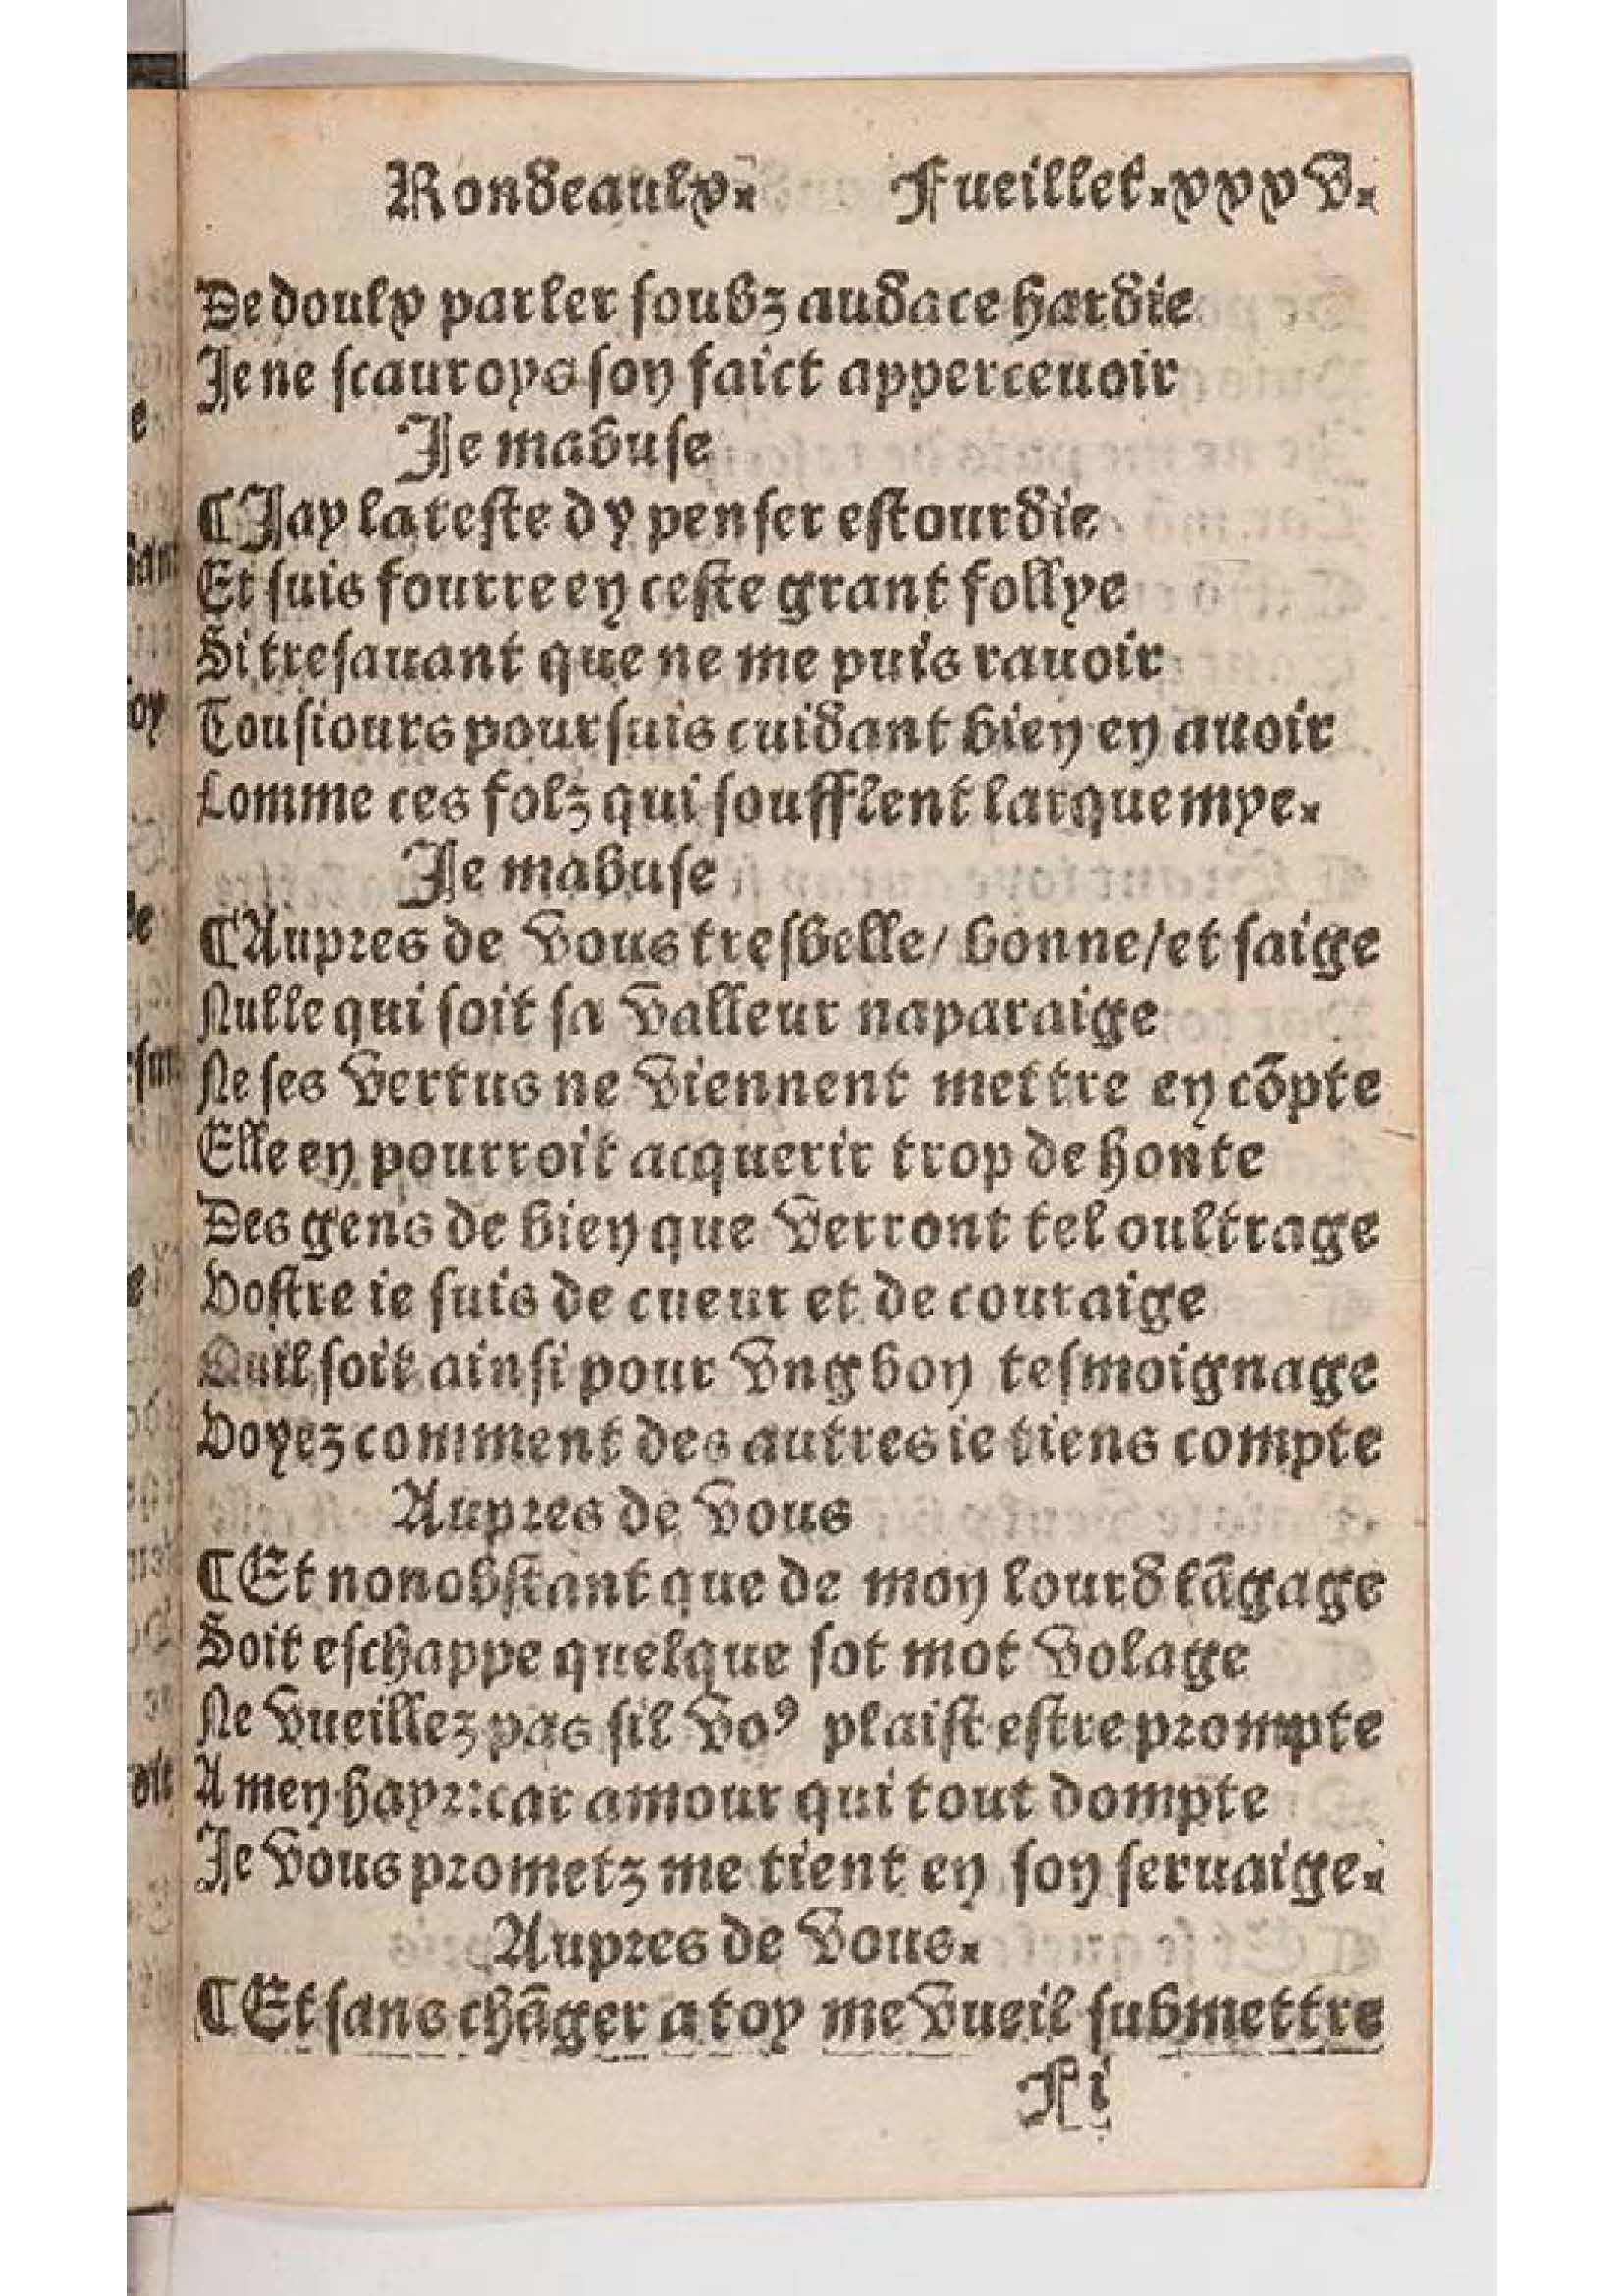 Rondeaulx. Fueillet.xxxv.
De doulx parler soubz audace hardie
Je ne scauroys son faict apperceuoir
Je mabuse
¶Jay la teste dy penser estourdie
Et suis fourre en ceste grant follye
Si tresauant que ne me puis rauoir
Tousiours poursuis cuidant bien en auoir
Comme ces folz qui soufflent larquemye.
Je mabuse
¶Aupres de vous tresbelle/ bonne/et saige
Nulle qui soit sa valleur naparaige
Ne ses vertus ne viennent mettre en cõpte
Elle en pourroit acquerir trop de honte
Des gens de bien que verront tel oultrage
Vostre ie suis de cueur et de couraige
Quil soit ainsi pour vng bon tesmoignage
Voyez comment des autres ie tiens compte
Aupres de vous
¶Et nonobstant que de mon lourd lãgage
Soit eschappe quelque sot mot volage
Ne vueillez pas sil voꝰ plaist estre prompte
A men hayr:car amour qui tout dompte
Je vous prometz me tient en son seruaige.
Aupres de vous.
¶Et sans chãger a toy me vueil submettre